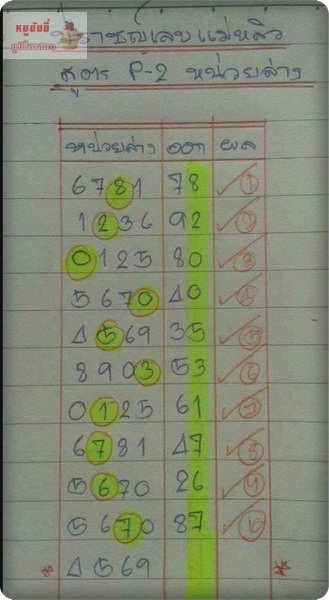 หมูมัมมี่
ราชญ์เลข แม่หลิว
สูตร P-2 หน่วยล่าง
หน่วยล่าง ออก ผล
6781 78 ✓ ①
1236 92 ✓ ②
0125 80 ✓ ③
5670 40 ✓ ④
4569 35 ✓ ⑤
8903 53 ✓ ⑥
0125 61 ✓ ⑦
6781 47 ✓ ⑧
5670 26 ✓ ⑨
5670 87 ✓ ⑩
* 4569 *